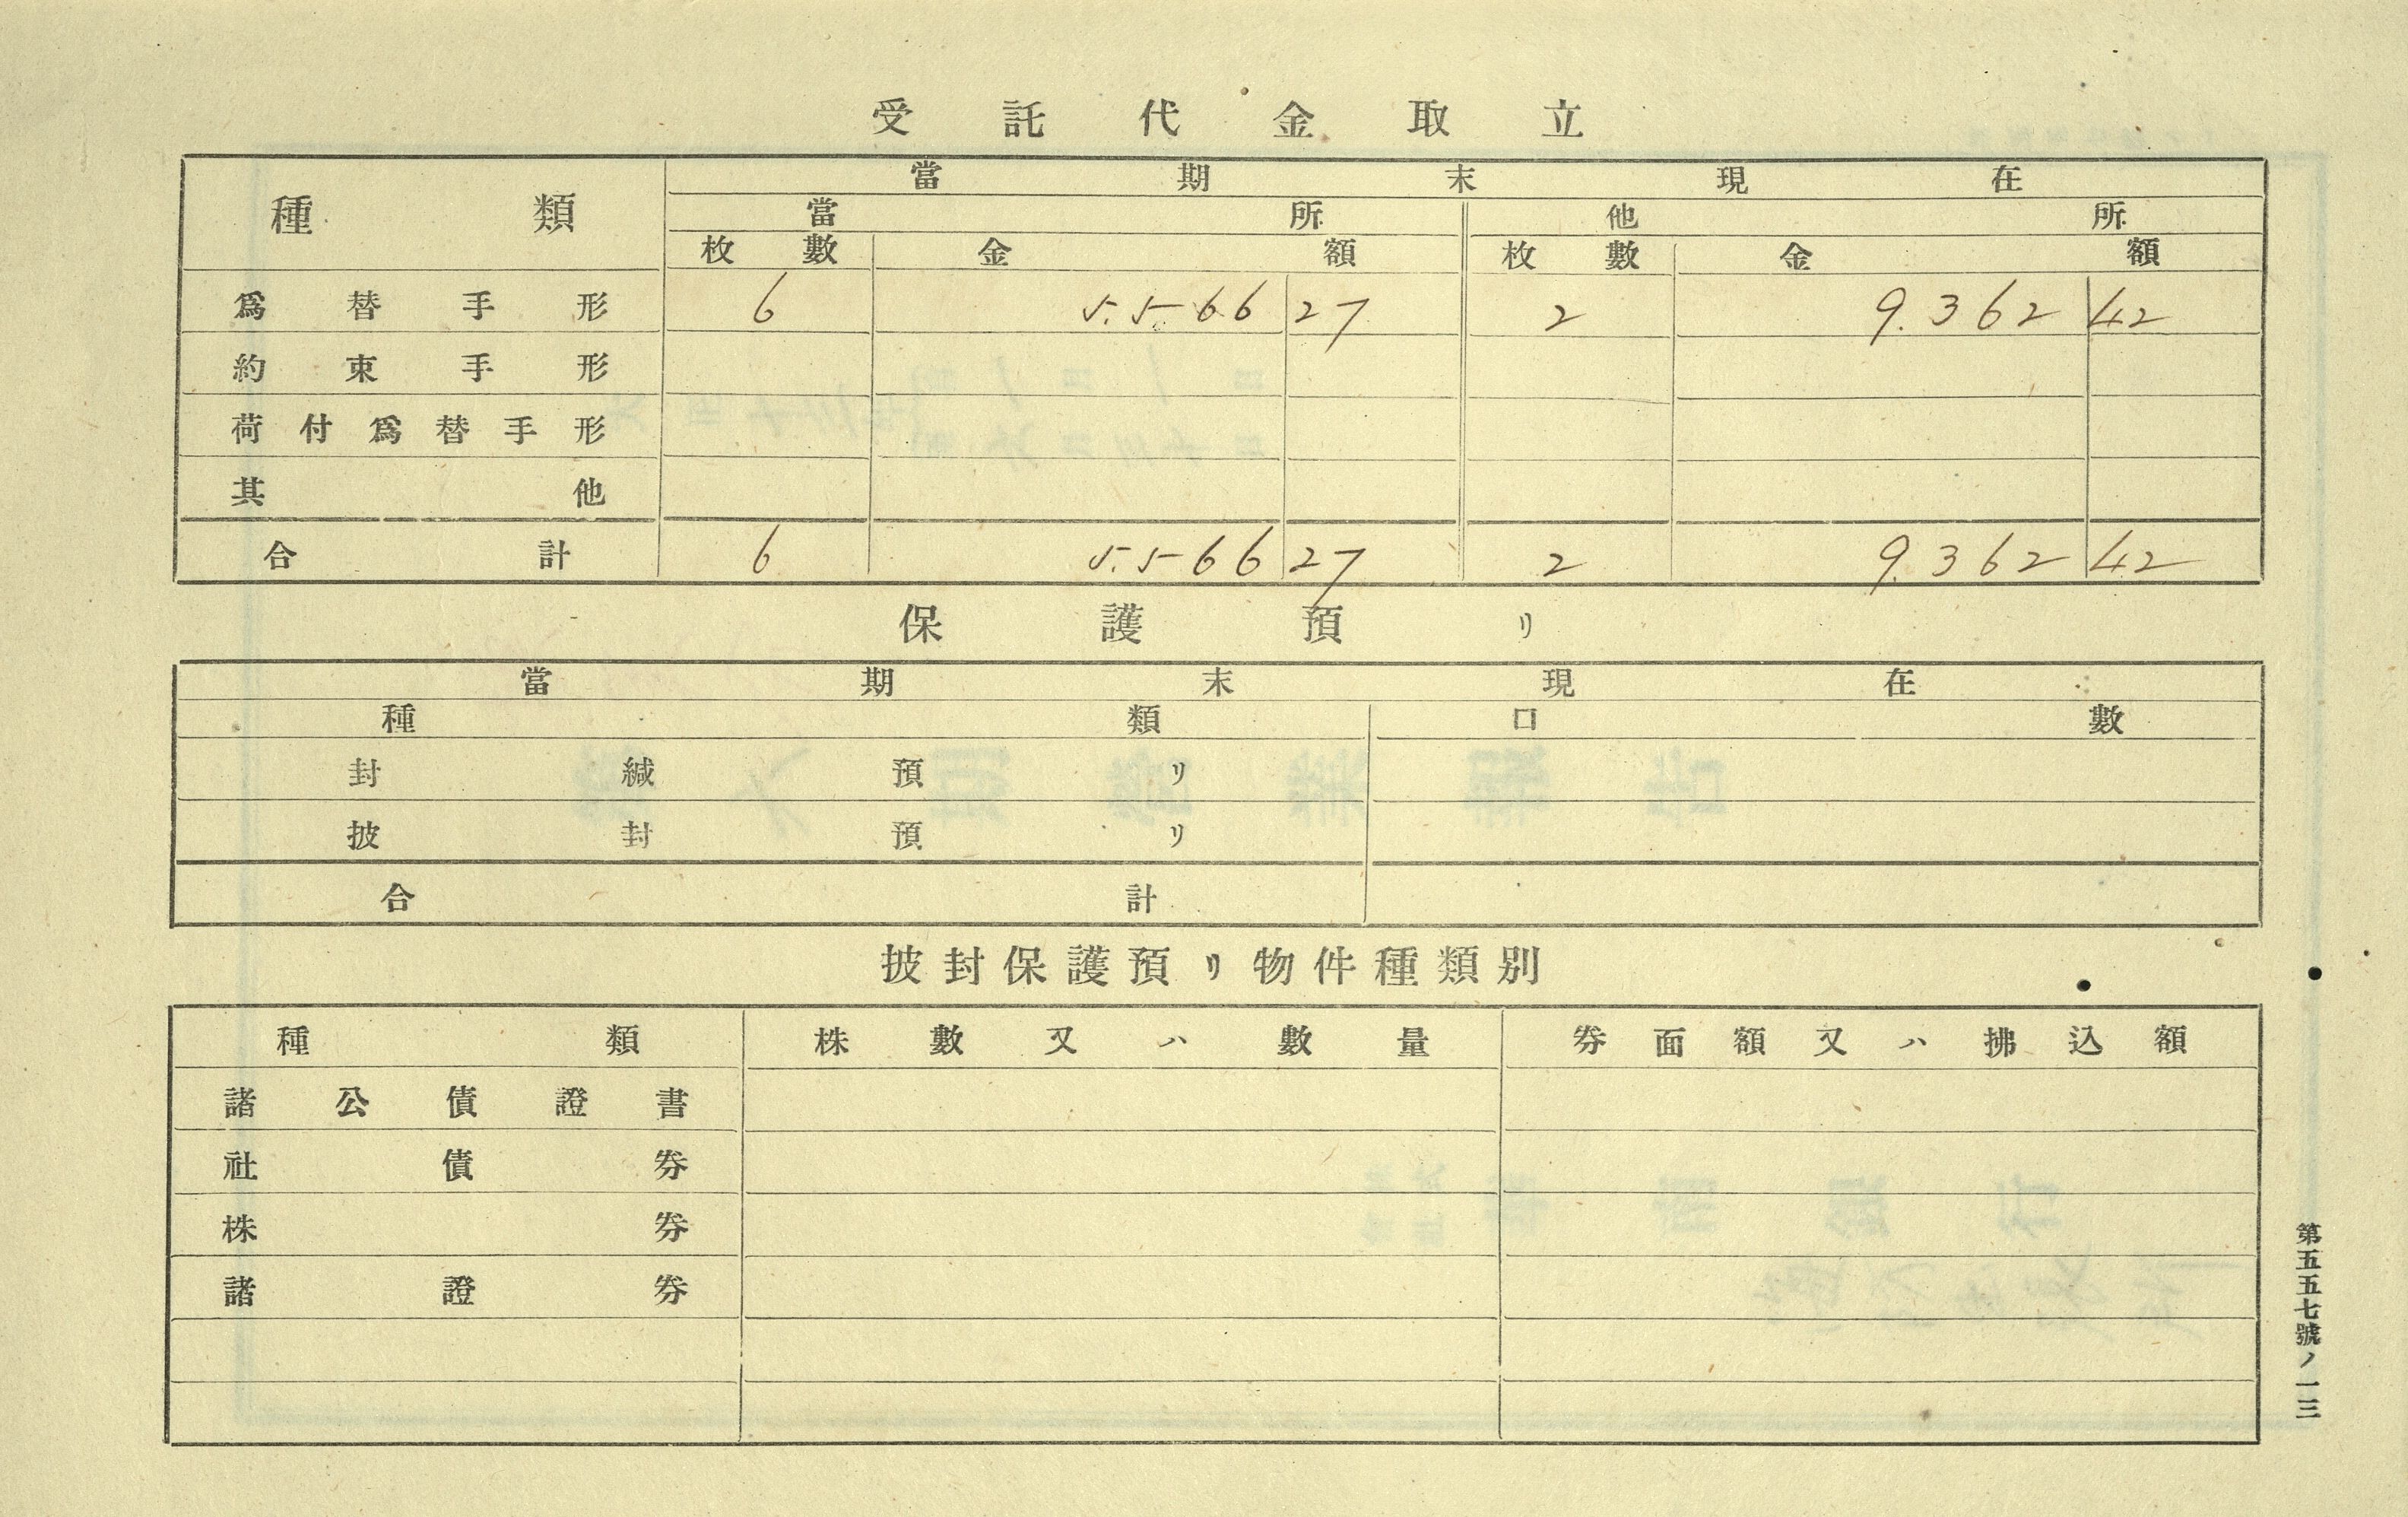 受託代金取立
種類 當期末現在
當所 他所
枚數 金額 枚數 金額
爲替手形 6 5.566 27 2 9.362 42
約束手形
荷付爲替手形
其他
合計 6 5.566 27 2 9.362 42
保護預リ
當期末現在
種類 口數
封緘預リ
披封預リ
合計
披封保護預リ物件種類別
種類 株數又ハ數量 券面額又ハ拂込額
諸公債證書
社債券
株券
諸證券
第五五七號ノ一三